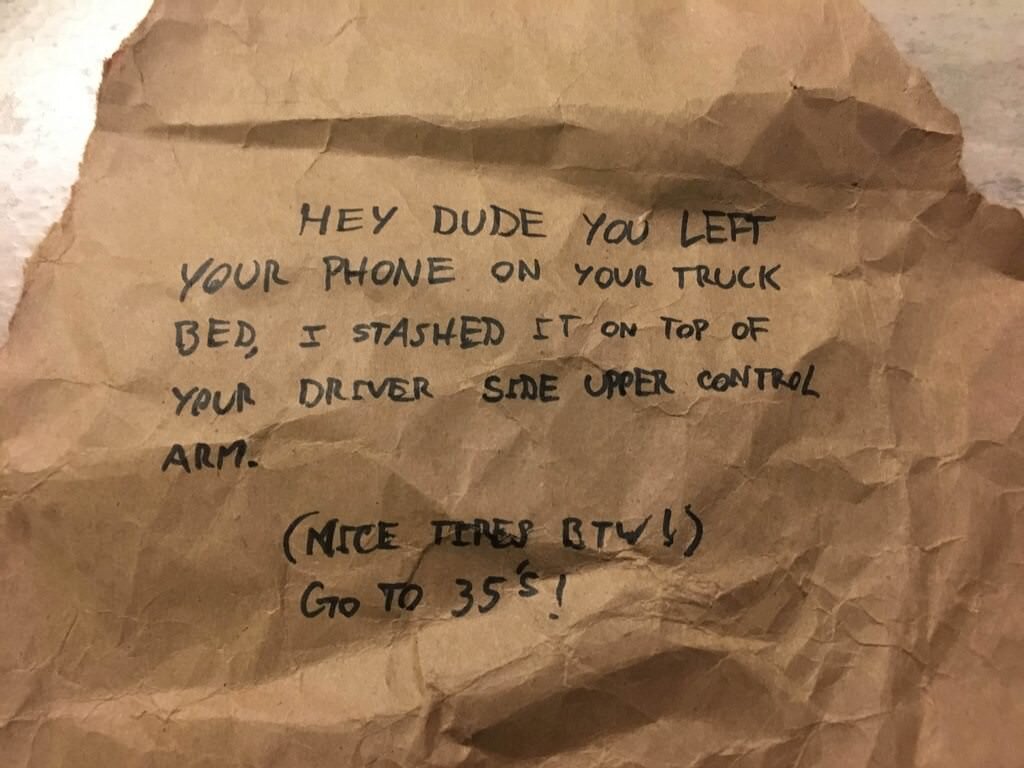 HEY DUDE YOU LEFT
YOUR PHONE ON YOUR TRUCK
BED, I STASHED IT ON TOP OF
YOUR DRIVER SIDE UPPER CONTROL
ARM.
(NICE TIRES BTW!)
GO TO 35'S!